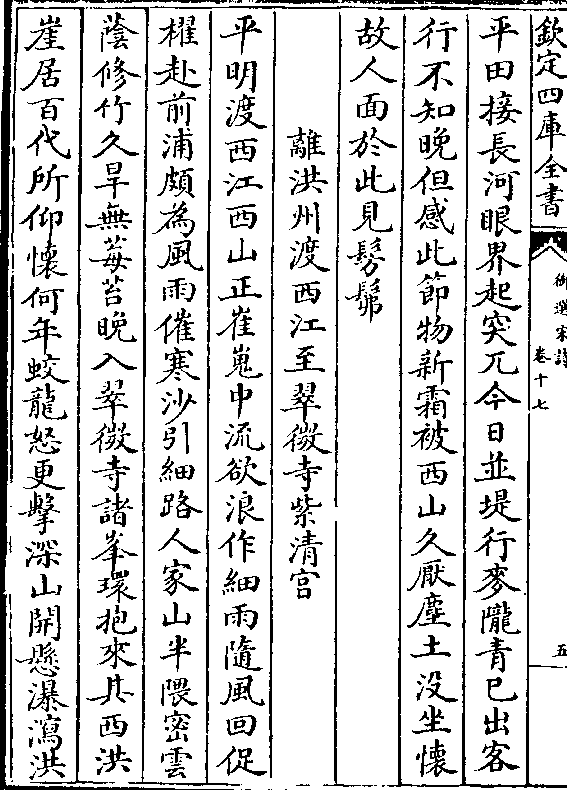 欽定四庫全書
御選宋詩
卷十七
五
平田接長河眼界起突兀今日並堤行麥隴青已出客
行不知晚但感此節物新霜被西山久厭塵土没坐懷
故人面於此見髣髴
離洪州渡西江至翠微寺紫清宫
平明渡西江西山正崔嵬中流欲浪作細雨隨風回促
櫂赴前浦頗為風雨催寒沙引細路人家山半隈宻雲
蔭修竹久旱無莓苔晚入翠微寺諸峯環抱來其西洪
崖居百代所仰懷何年蛟龍怒更擊深山開懸瀑瀉洪